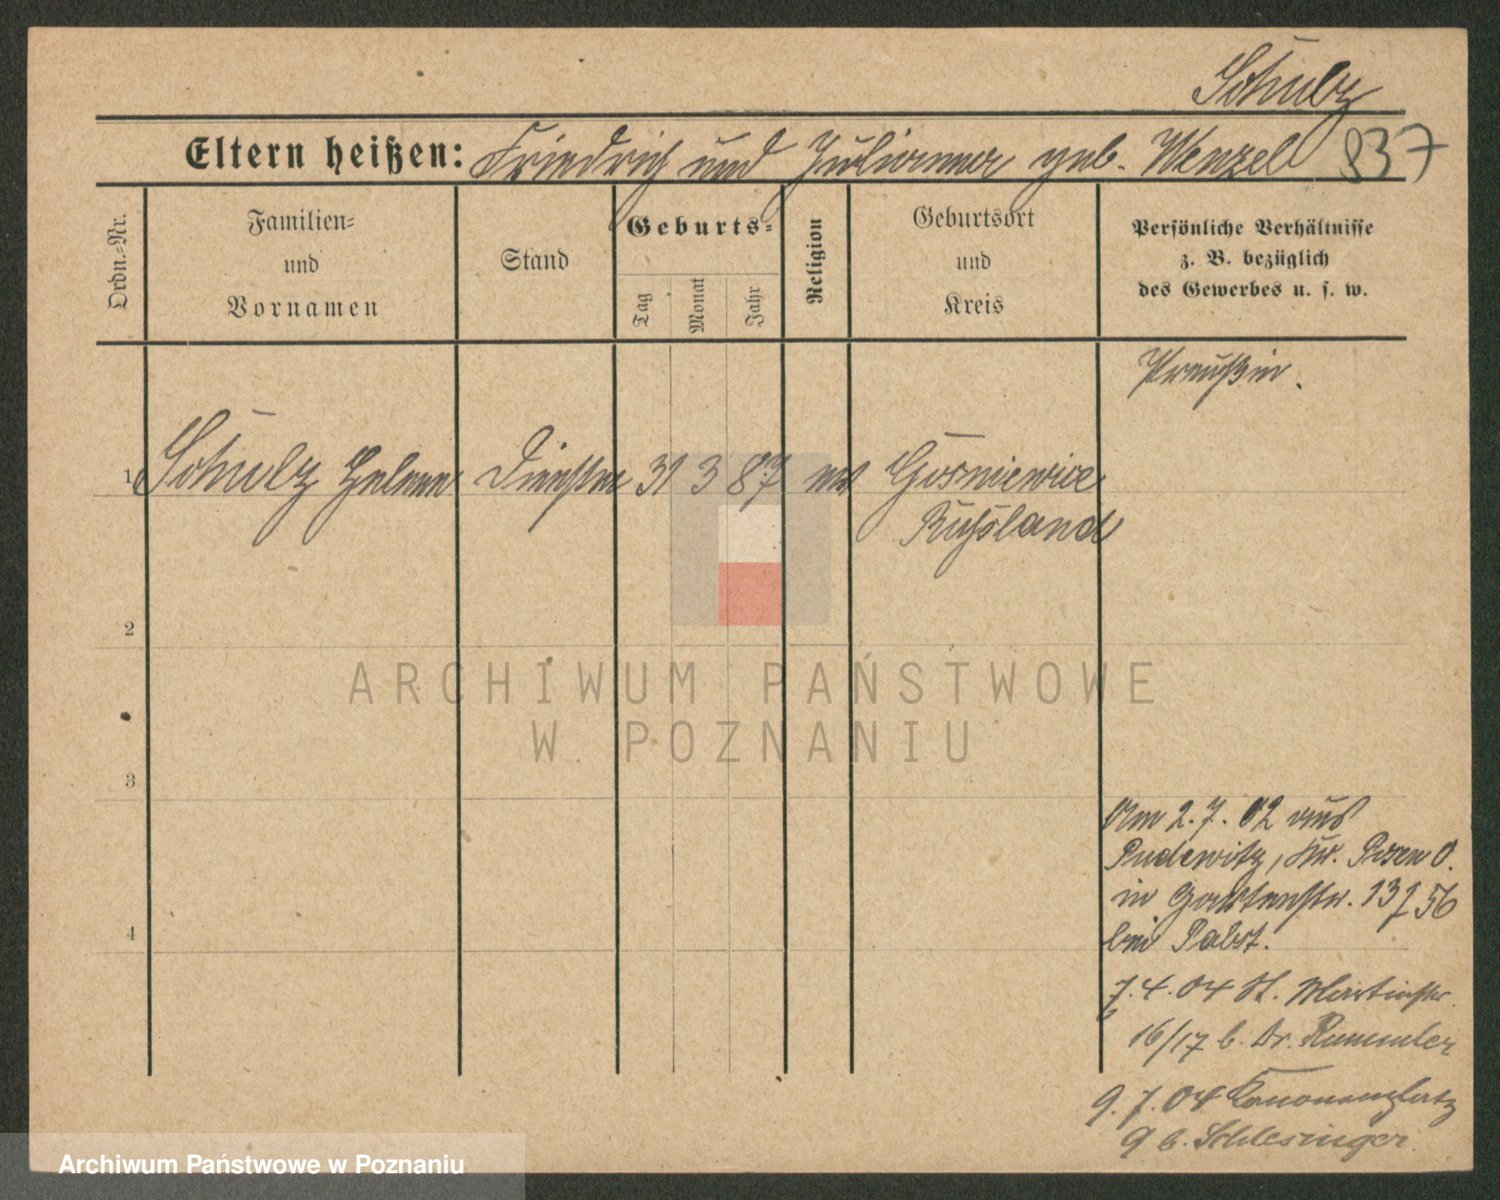 Schulz
Eltern heißen: Friedrich und Julianna geb. Wenzel 837
Ordn.-Nr.
Familien-
und
Vornamen
Stand
Geburts-
Tag
Monat
Jahr
Religion
Geburtsort
und
Kreis
Persönliche Verhältnisse
z. B. bezüglich
des Gewerbes u. s. w.
Preußin.
1 Schulz Helene 31 3 87
Russland
2
3
4
Am 2.7.02 aus
Pudewitz, Kr. Posen O.
in Gartenstr. 13 / 56
bei Pabst.
7.4.04 St. Martinstr.
16/17 b. Dr. Rummler
9.7.04 Kanonenplatz
9 b. Schlesinger.
ARCHIWUM PAŃSTWOWE
W POZNANIU
Archiwum Państwowe w Poznaniu